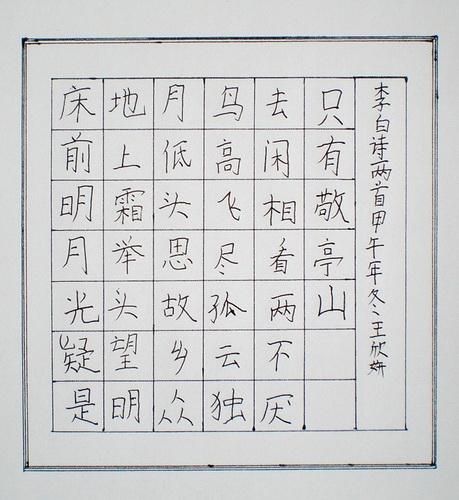 床前明月光疑是
地上霜举头望明
月低头思故乡众
鸟高飞尽孤云独
去闲相看两不厌
只有敬亭山
李白诗两首甲午年冬王欣妍